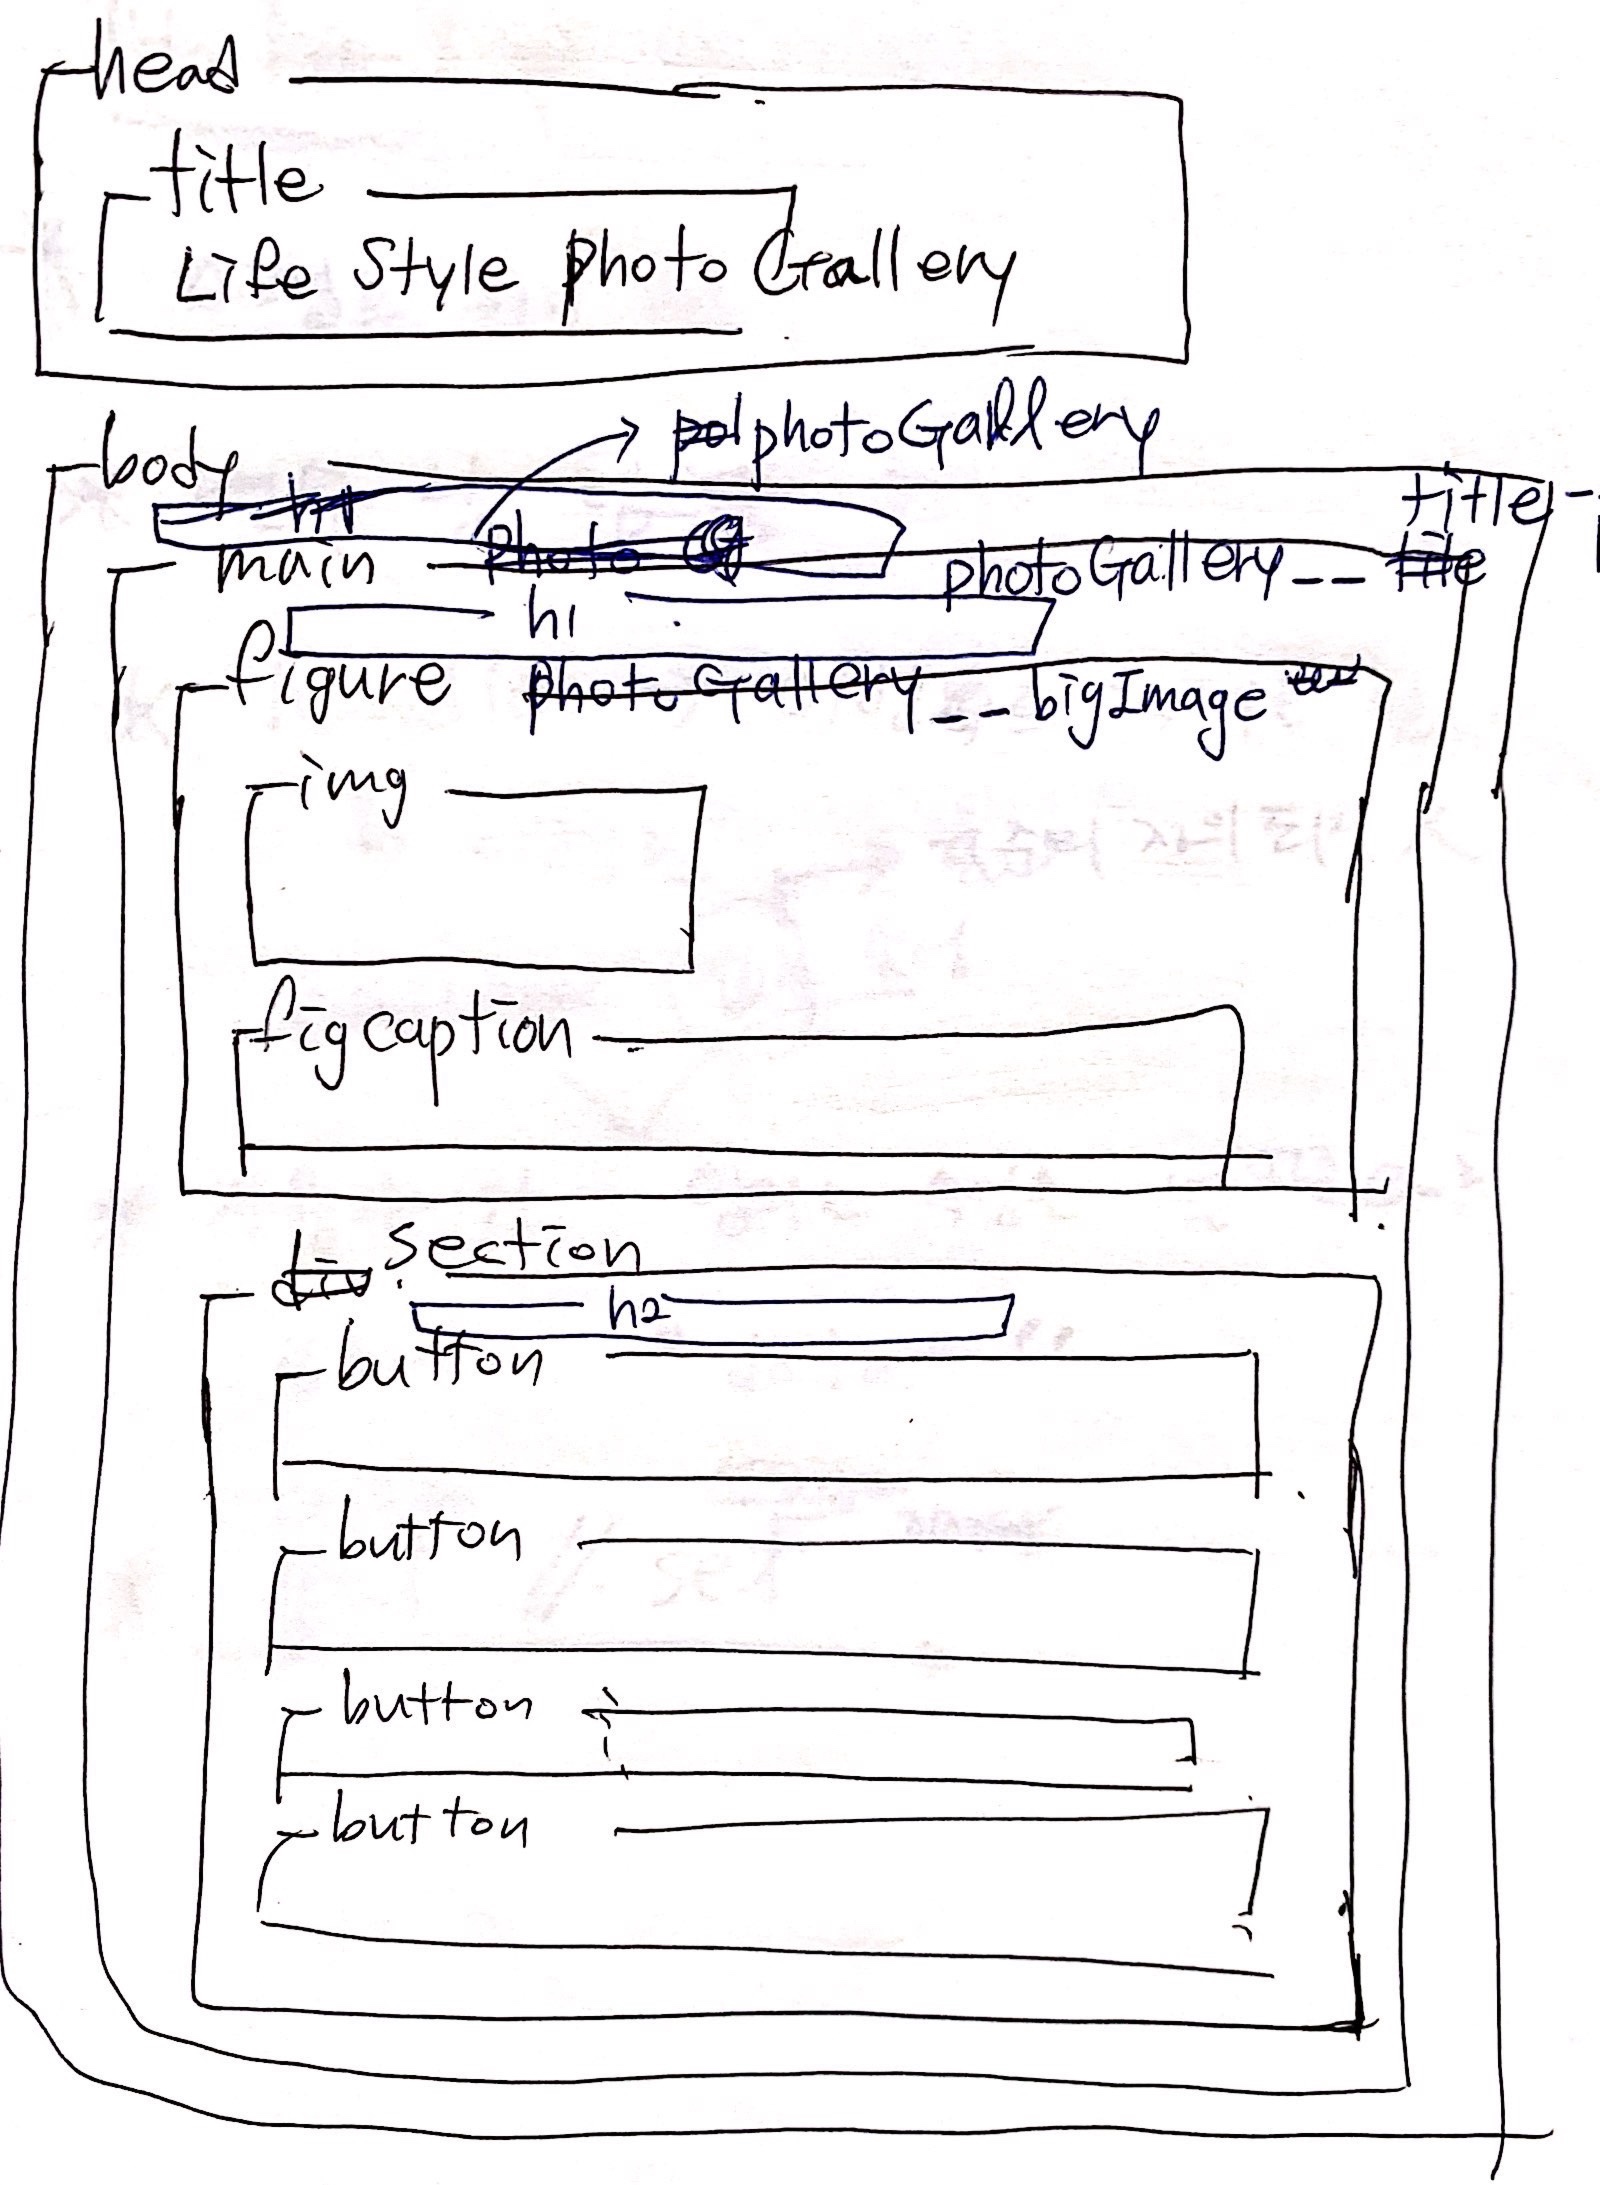 head
title
Life Style photo Gallery
photoGallery
body
h1
title
photo G
main
photoGallery__ title
h1
figure photo Gallery__bigImage
img
figcaption
section
div
h2
button
button
button
button